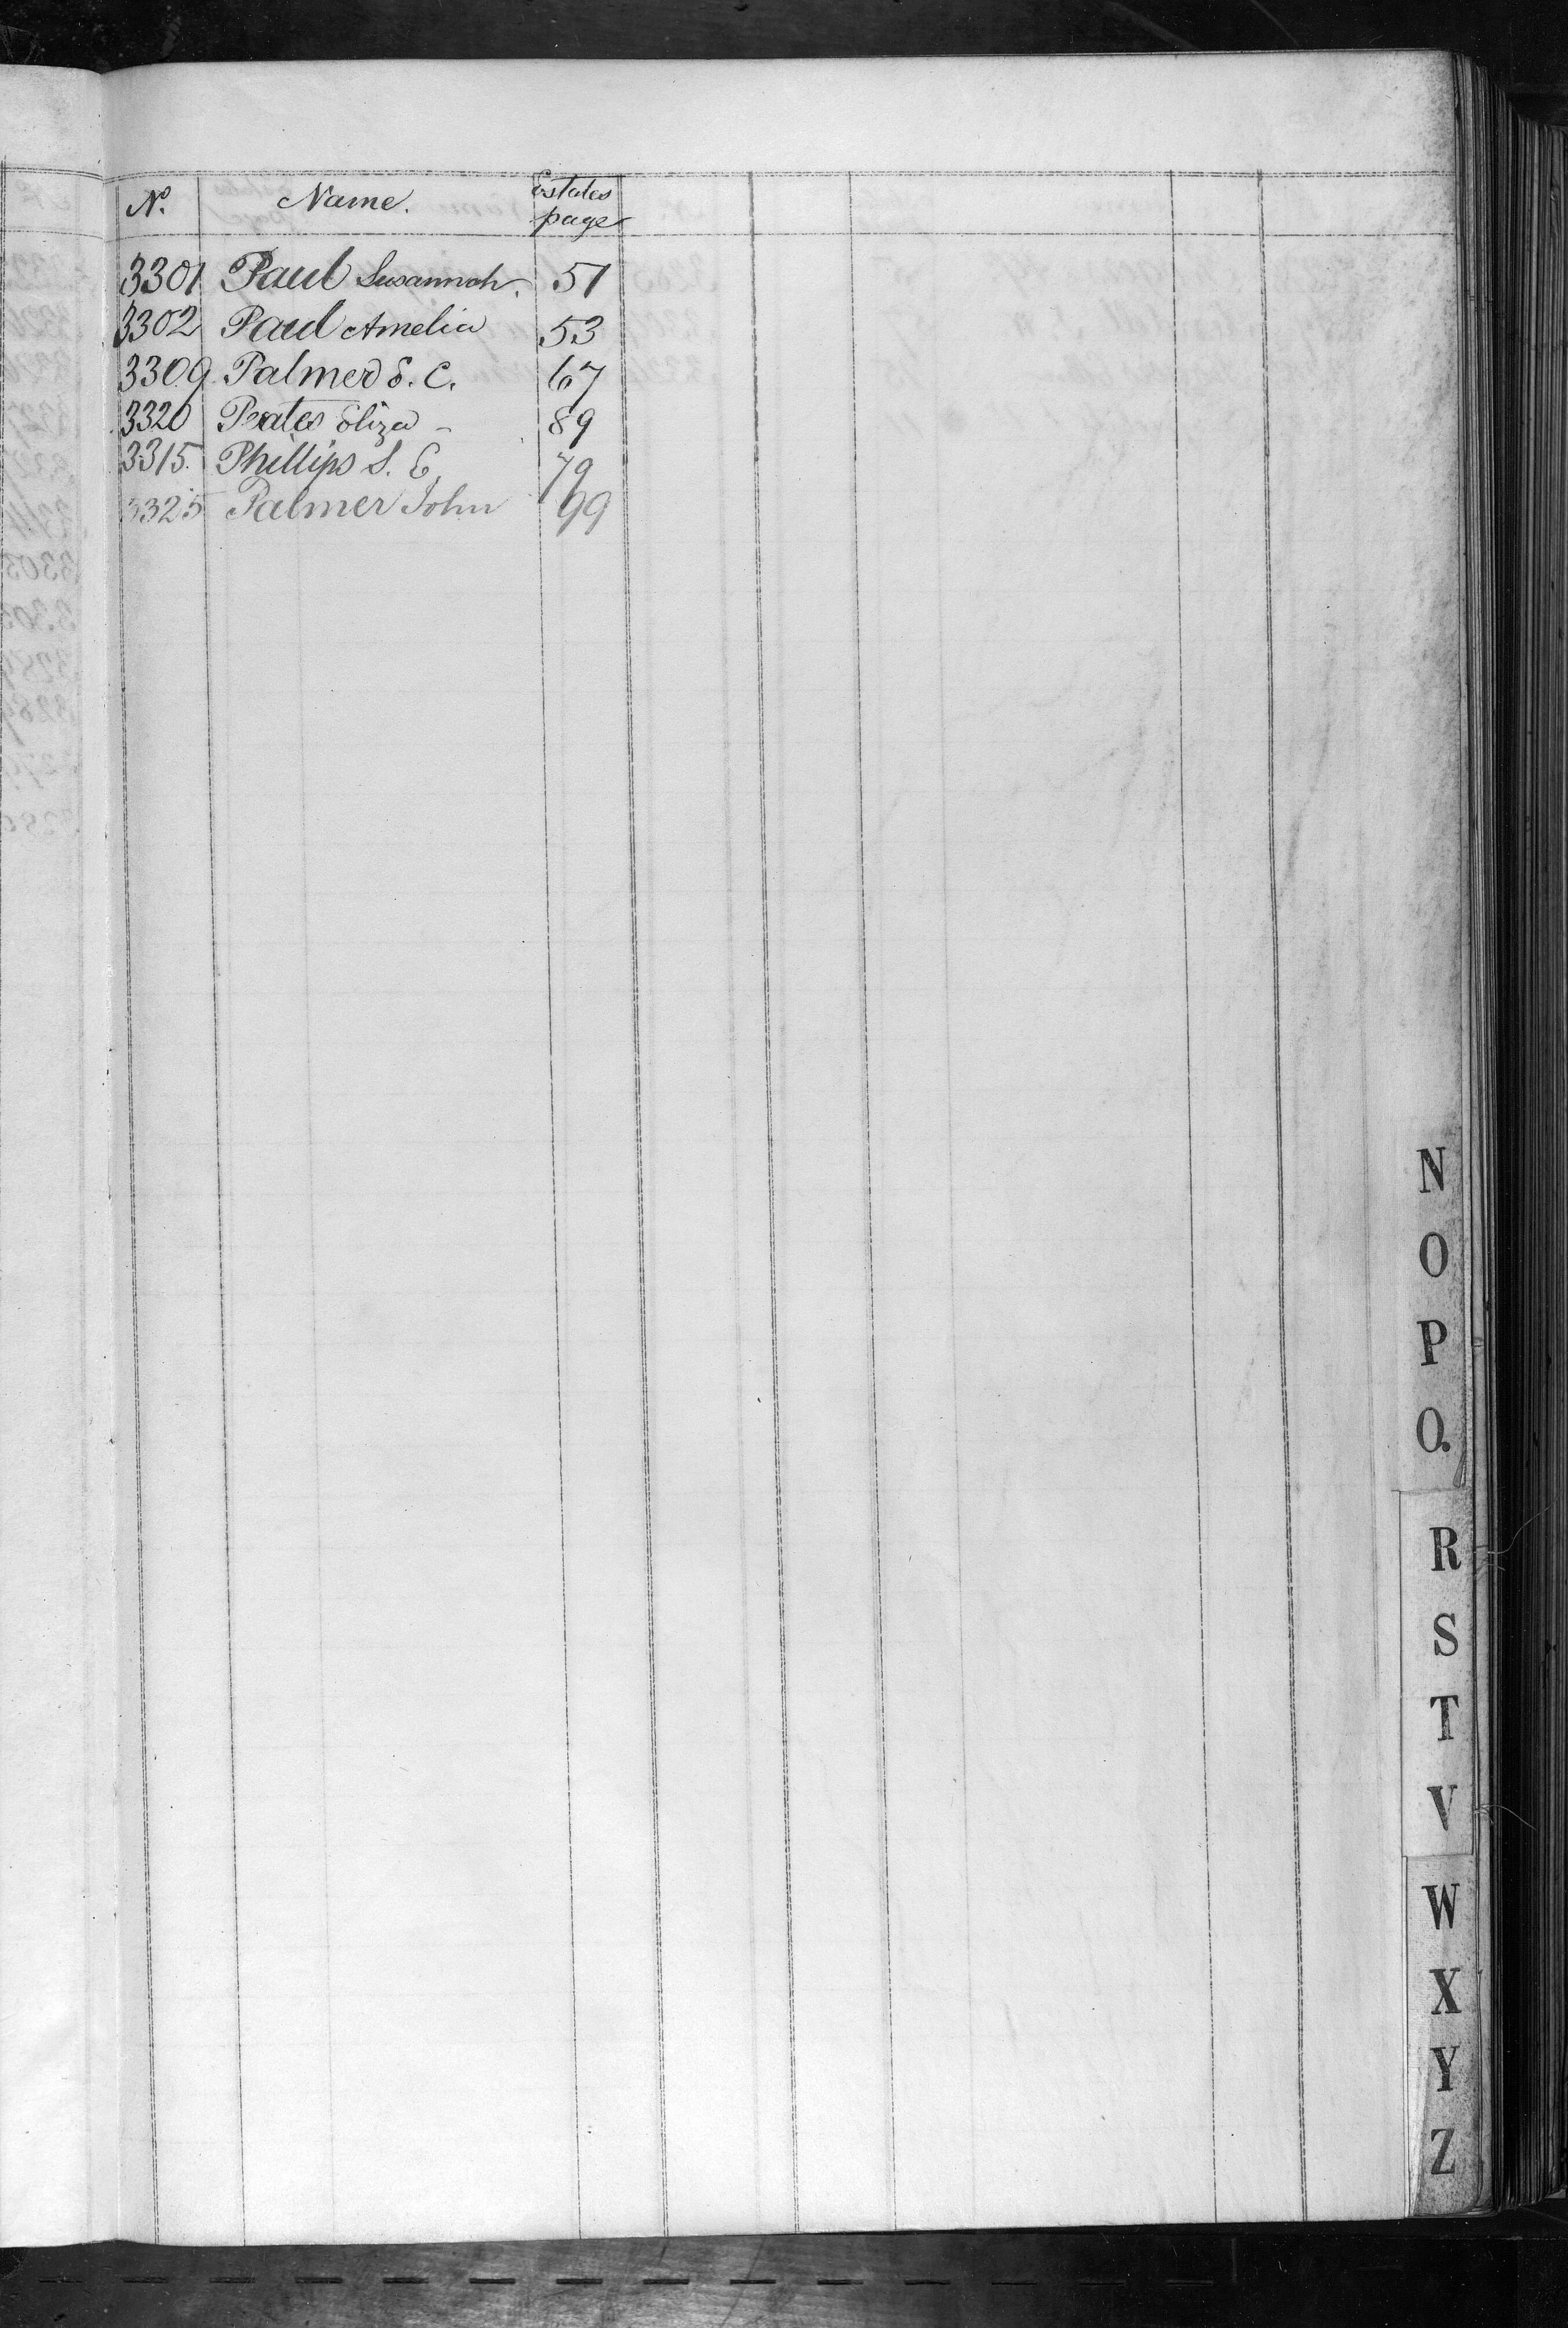 N. Name. Estates page
3301 Paul Susannah. 51
3302 Paul Amelia 53
3309 Palmer E. C. 67
3320 Peates Eliza - 89
3315. Phillips S. E. 79
3325 Palmer John 99
N
O
P
Q.
R
S
T
V
W
X
Y
Z